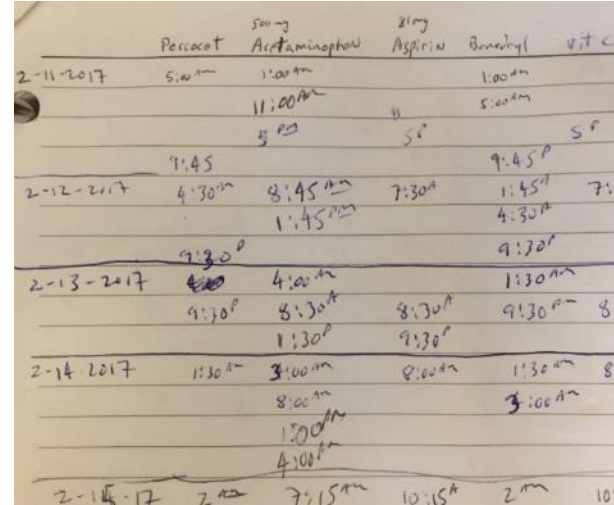 500mg 81mg
Percocet Acetaminophen Aspirin Benadryl vit c
2-11-2017 5:00 am 1:00 am 1:00 am
11:00 Am 5:00 am
5 PM 5 P 5 P
9:45 9:45 P
2-12-2017 4:30 am 8:45 Am 7:30 A 1:45 A 7:
1:45 PM 4:30 A
9:30 P 9:30 P
2-13-2017 4:00 Am 1:30 Am
9:30 P 8:30 A 8:30 A 9:30 Pm 8
1:30 P 9:30 P
2-14-2017 1:30 Am 3:00 Am 8:00 Am 1:30 Am 8
8:00 Am 3:00 Am
1:00 PM
4:00 PM
2-15-17 2 Am 7:15 Am 10:15 A 2 Am 10: